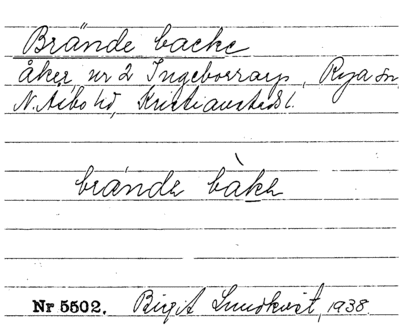 Brände backe
åker nr 2 Ingeborrarp, Rya sn
N. Åsbo hd, Kristianstads l.
brände bàkə
Nr 5502. Birgit Lundkvist, 1938